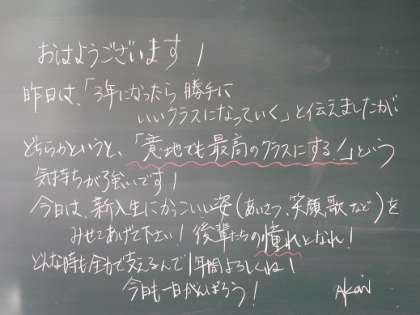 おはようございます!
昨日は、「3年になったら勝手に
いいクラスになっていく」と伝えましたが、
どちらかというと、「意地でも最高のクラスにする!」という
気持ちが強いです!
今日は、新入生にかっこいい姿(あいさつ、笑顔、歌など)を
みせてあげて下さい!後輩たちの憧れとなれ!
どんな時も全力で支えるんで1年間よろしくね!
今日も一日がんばろう!